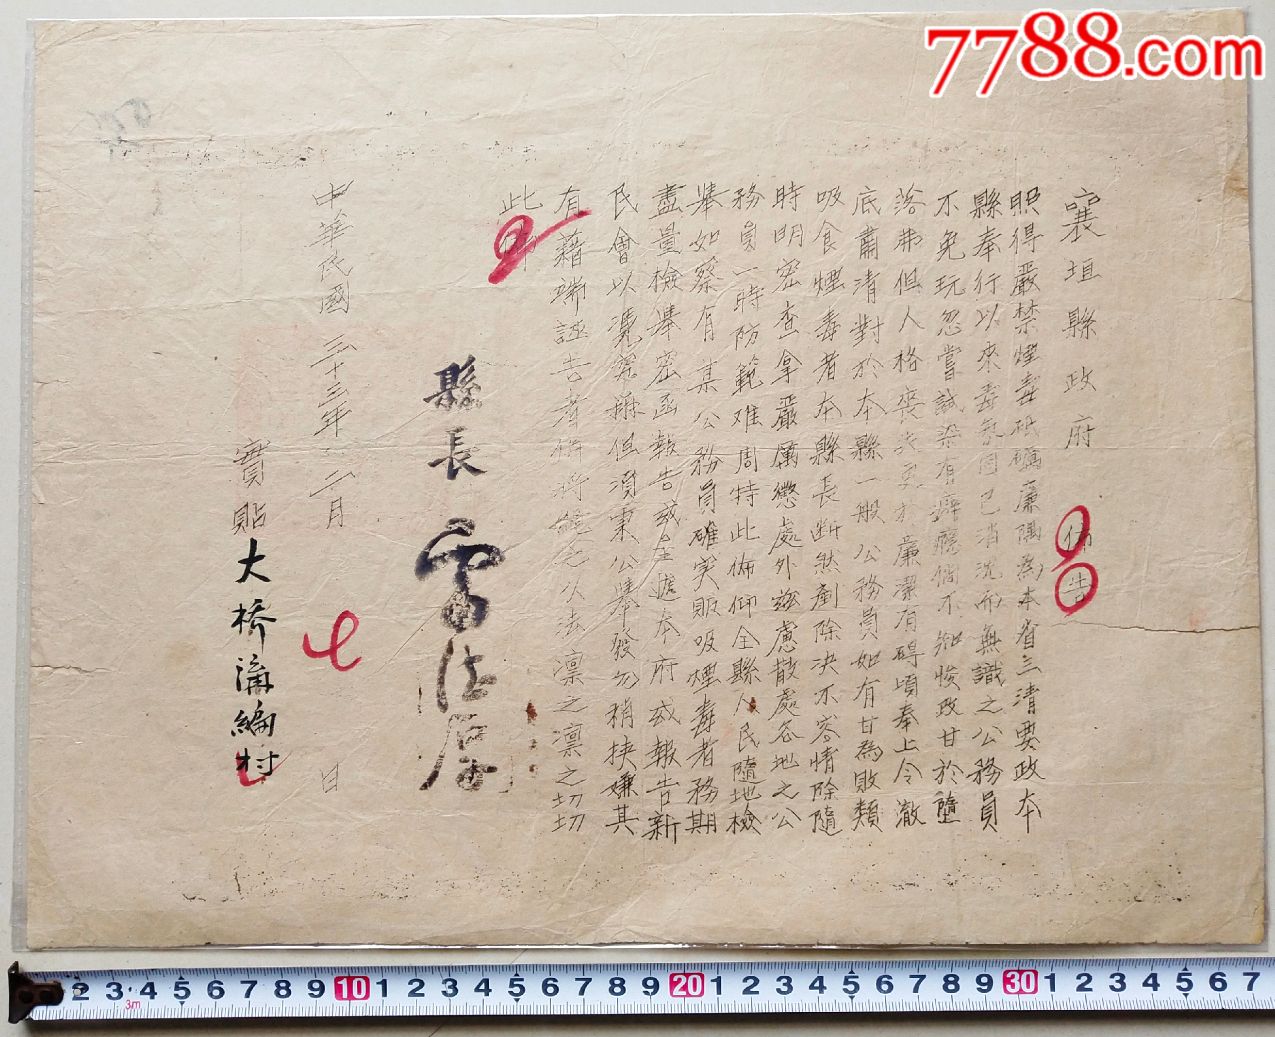 7788.com
襄垣縣政府 佈告
照得嚴禁煙毒砥礪廉隅為本省三清要政本
縣奉行以來毒氛固已消沈而無識之公務員
不免玩忽嘗試染有癖癮倘不知悛改甘於墮
落弗但人格喪失更於廉潔有碍頃奉上令澈
底肅清對於本縣一般公務員如有甘為敗類
吸食煙毒者本縣長斷然剷除決不容情除隨
時明密查拿嚴厲懲處外茲慮散處各地之公
務員一時防範难周特此佈仰全縣人民隨地檢
舉如察有某公務員確实販吸煙毒者務期
盡量檢舉密函報告或逕來本府或報告新
民會以憑究辦但須秉公舉發勿稍挾嫌其
有藉端誣告者將以法凛之凛之切切
此佈
縣長
中華民國三十三年二月七日
實貼大橋溝編村
2 3 4 5 6 7 8 9 10 1 2 3 4 5 6 7 8 9 20 1 2 3 4 5 6 7 8 9 30 1 2 3 4 5 6 7
3m